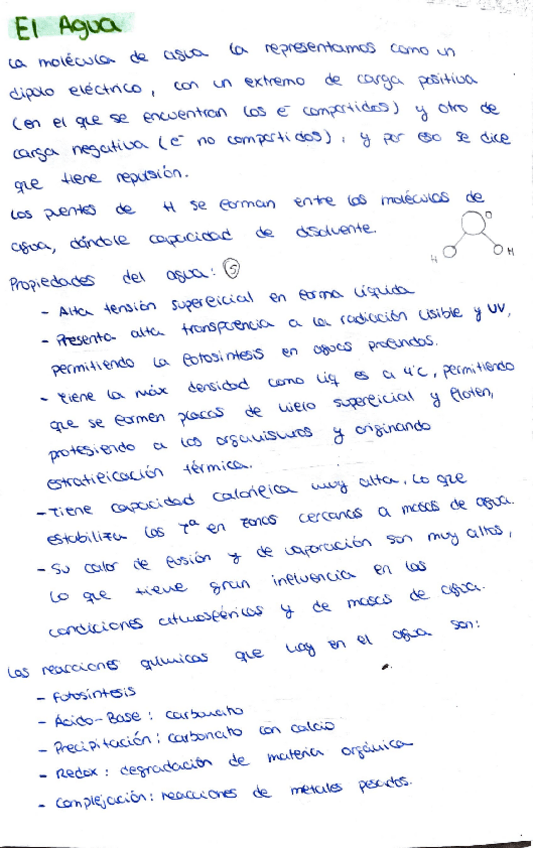 El Agua
La molécula de agua la representamos como un
dipolo eléctrico, con un extremo de carga positiva
(en el que se encuentran los e⁻ compartidos) y otro de
carga negativa (e⁻ no compartidos), y por eso se dice
que tiene repulsión.
Los puentes de H se forman entre las moléculas de
agua, dándole capacidad de disolvente.
O
H
H
Propiedades del agua: 5
- Alta tensión superficial en forma líquida
- Presenta alta transparencia a la radiación visible y UV,
permitiendo la fotosíntesis en aguas profundas.
- Tiene la máx densidad como líq es a 4°C, permitiendo
que se formen placas de hielo superficial y floten,
protegiendo a los organismos y originando
estratificación térmica.
- Tiene capacidad calorífica muy alta, lo que
estabiliza las Tª en zonas cercanas a masas de agua.
- Su calor de fusión y de vaporación son muy altos,
lo que tiene gran influencia en las
condiciones atmosféricas y de masas de agua.
Las reacciones químicas que hay en el agua son:
- Fotosíntesis
- Ácido-Base: carbonato
- Precipitación: carbonato con calcio
- Redox: degradación de materia orgánica
- Complejación: reacciones de metales pesados.